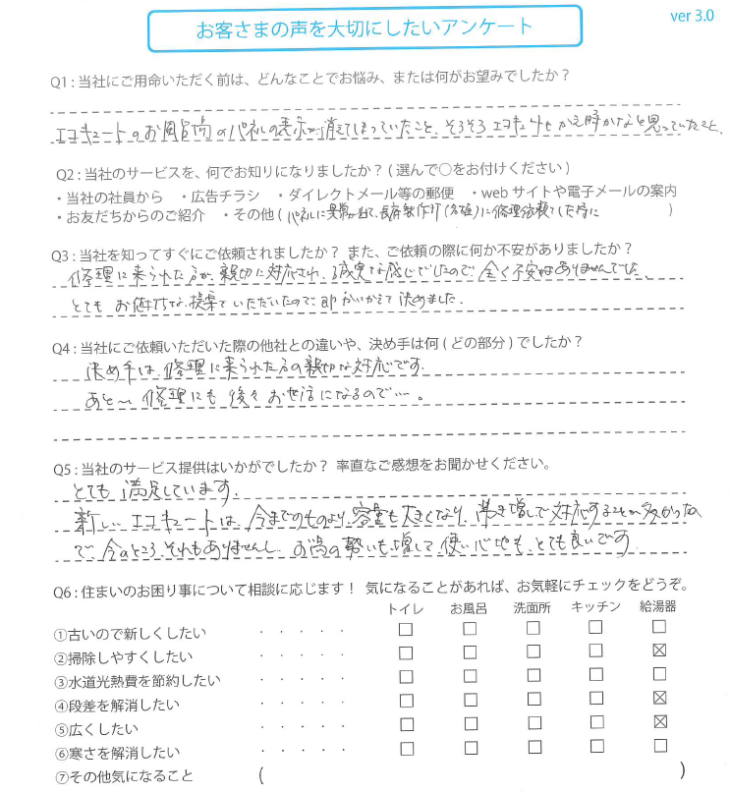 お客さまの声を大切にしたいアンケート
ver 3.0
Q1 : 当社にご用命いただく前は、どんなことでお悩み、または何がお望みでしたか？
エコキュートのお風呂場のパネルの表示が消えてしまっていたこと、そろそろエコキュートもかえ時かなと思っていたこと、
Q2 : 当社のサービスを、何でお知りになりましたか？ ( 選んで○をお付けください )
・当社の社員から ・広告チラシ ・ダイレクトメール等の郵便 ・web サイトや電子メールの案内
・お友だちからのご紹介 ・その他 ( パネルに異常が出て、長府製作所 に修理依頼をした時に )
Q3 : 当社を知ってすぐにご依頼されましたか？ また、ご依頼の際に何か不安がありましたか？
修理に来られた方が、親切に対応され、誠実な感じでしたので、全く不安はありませんでした。
とてもお値打ちな提案をしていただいたので、即かいかえを決めました。
Q4 : 当社にご依頼いただいた際の他社との違いや、決め手は何 ( どの部分 ) でしたか？
決め手は、修理に来られた方の親切な対応です。
あと〜修理にも後々お世話になるので…。
Q5 : 当社のサービス提供はいかがでしたか？ 率直なご感想をお聞かせください。
とても満足しています。
新しいエコキュートは、今までのものより、容量も大きくなり、沸き増しで対応することが多かったの
で、今のところ、それもありませんし、お湯の勢いも増して、使い心地も、とても良いです
Q6 : 住まいのお困り事について相談に応じます！ 気になることがあれば、お気軽にチェックをどうぞ。
トイレ お風呂 洗面所 キッチン 給湯器
①古いので新しくしたい ・・・・・ □ □ □ □ □
②掃除しやすくしたい ・・・・・ □ □ □ □ ☒
③水道光熱費を節約したい ・・・・・ □ □ □ □ □
④段差を解消したい ・・・・・ □ □ □ □ ☒
⑤広くしたい ・・・・・ □ □ □ □ ☒
⑥寒さを解消したい ・・・・・ □ □ □ □ □
⑦その他気になること ( )